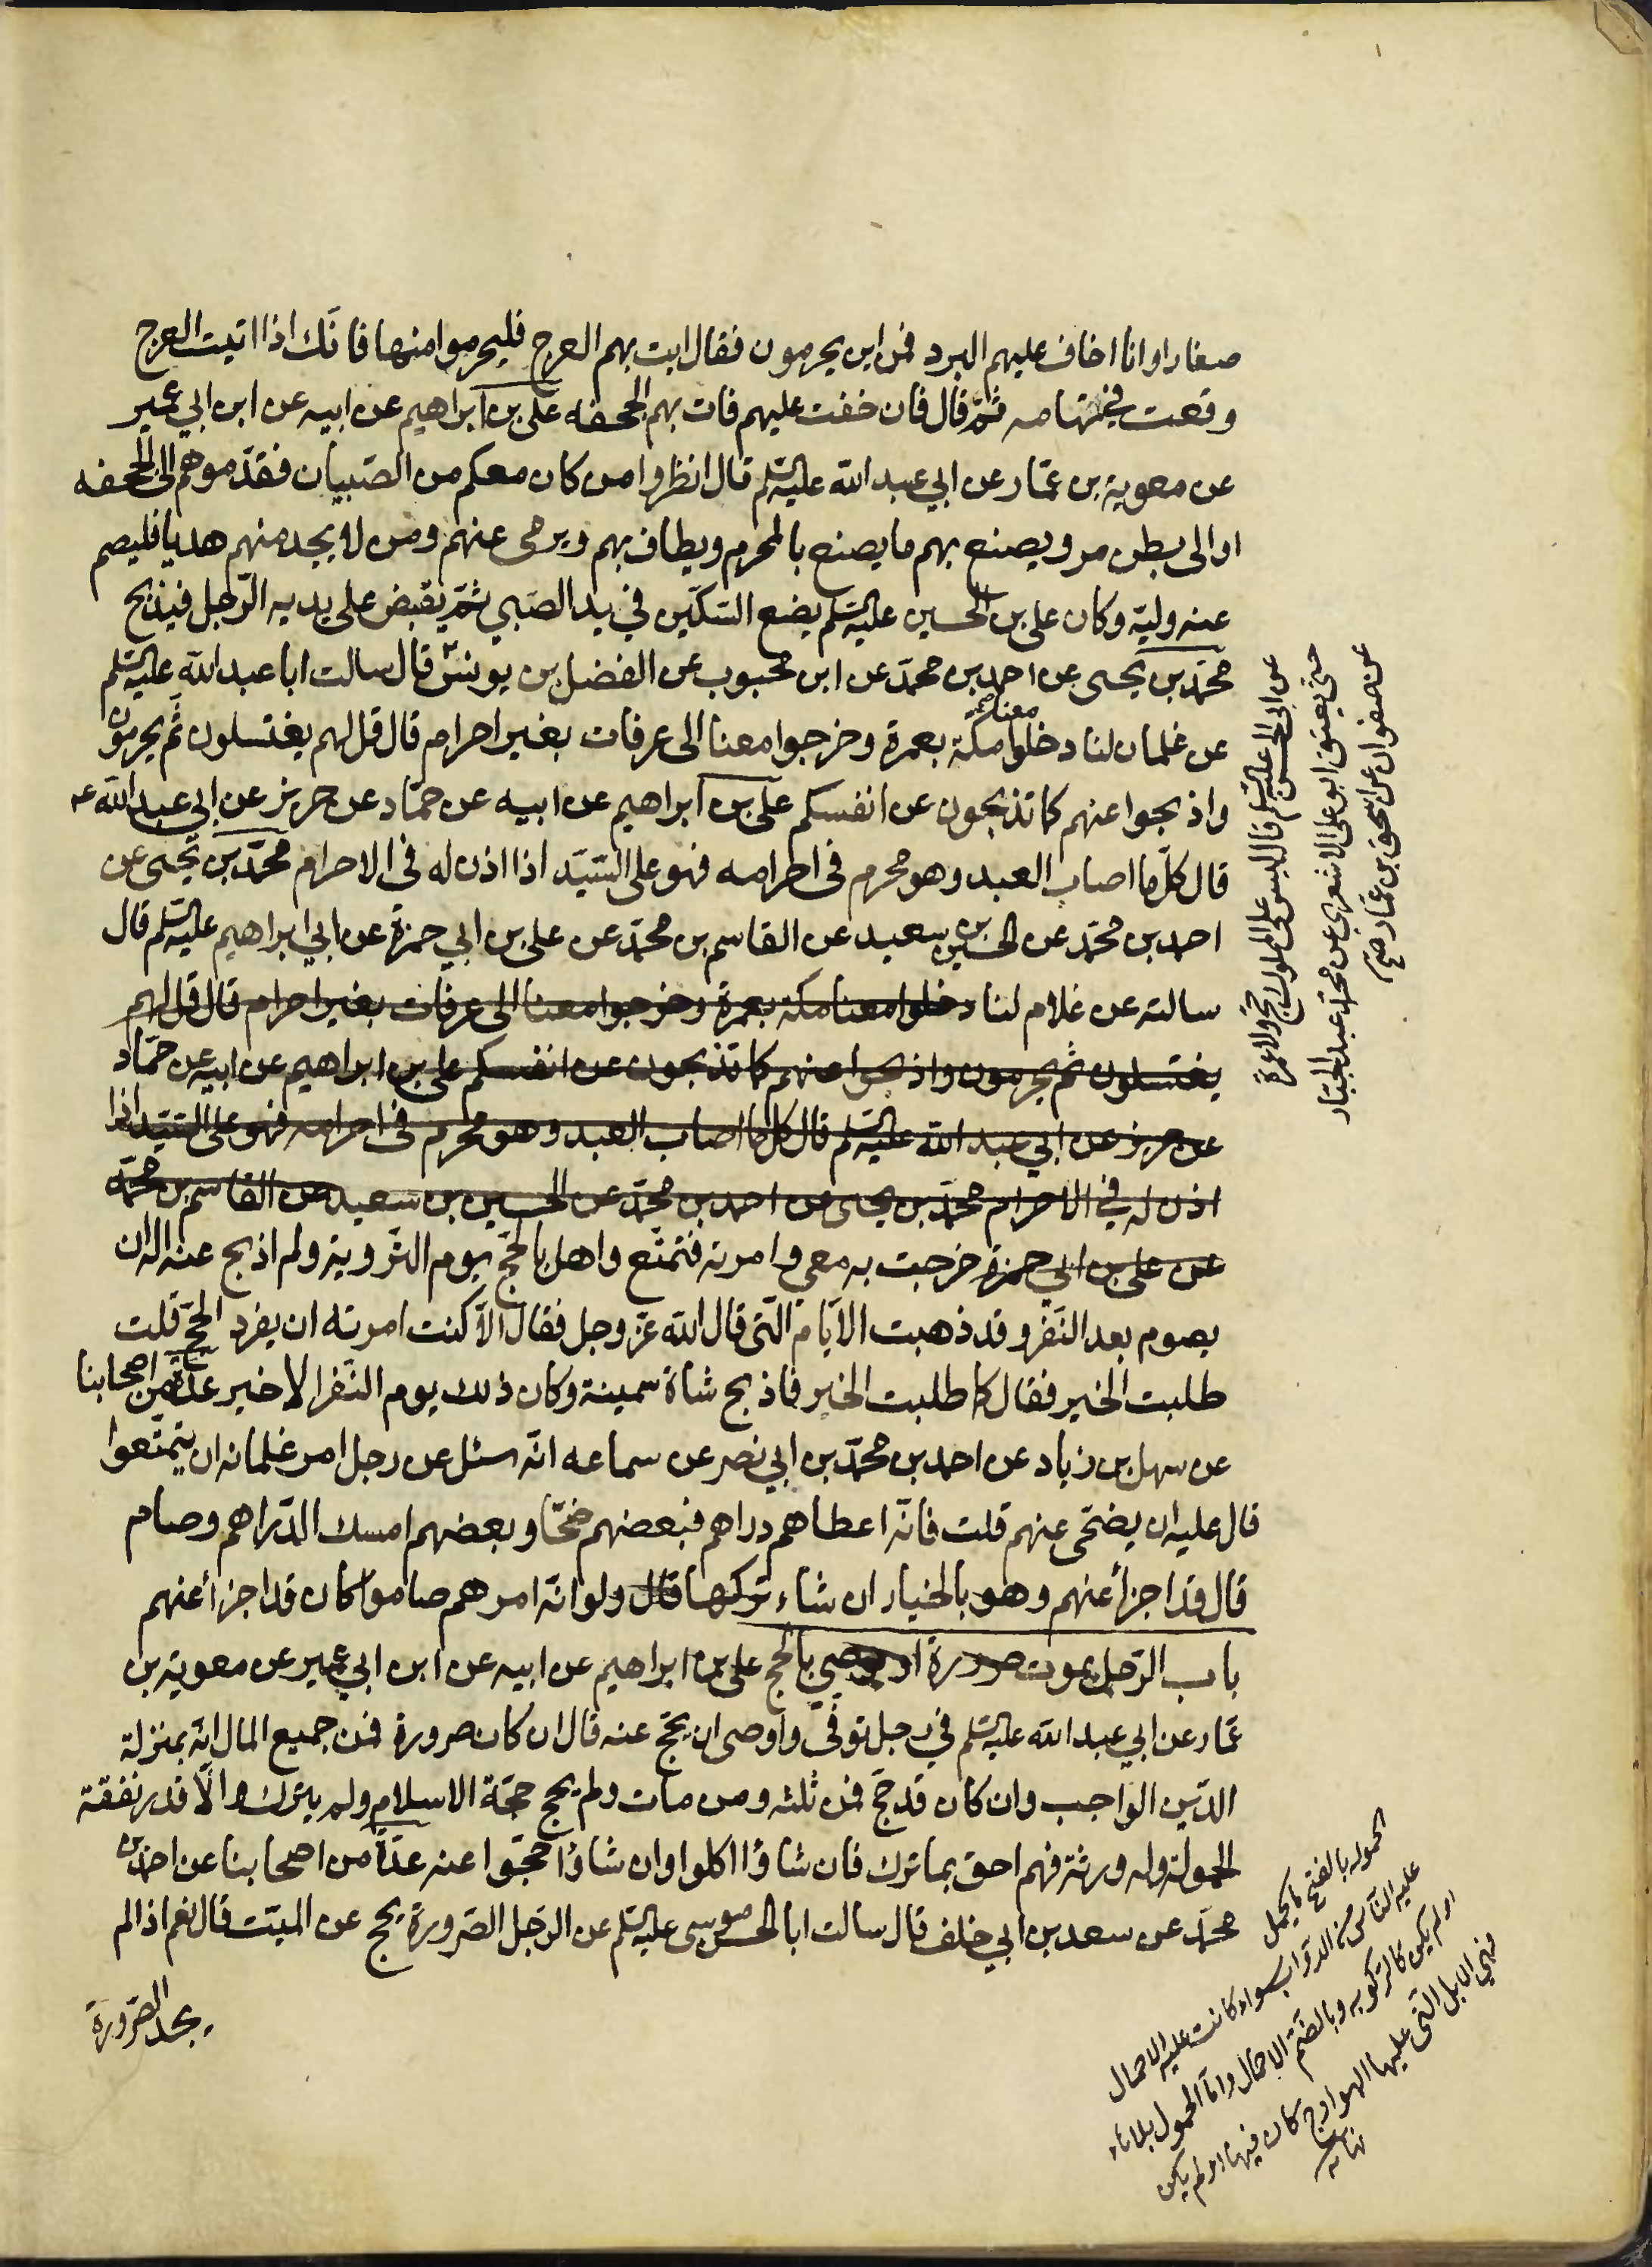 صغارا وانا اخاف عليهم البرد فمن اين يحرمون فقال ايت بهم العرج فليحرموا منها فانّك اذا اتيت العرج
وقعت في تهامه ثمّ قال فان خفت عليهم فات بهم الجحفه على بن ابراهيم عن ابيه عن ابن ابي عمير
عن معوية بن عمّار عن ابي عبد الله عليه السلم قال انظروا من كان معكم من الصّبيان فقدّموهم الى الجحفه
او الى بطن مر و يصنع بهم ما يصنع بالمحرم ويطاف بهم ويرمى عنهم ومن لا يجد منهم هديا فليصم
عنه وليّه وكان على بن الحسين عليه السلم يضع السّكّين في يد الصّبي ثمّ يقبض على يديه الرّجل فيذبح
محمّد بن يحيى عن احمد بن محمّد عن ابن محبوب عن الفضل بن يونس قال سالت ابا عبد الله عليه السلم
عن غلمان لنا دخلوا معنا مكّة بعمرة وخرجوا معنا الى عرفات بغير احرام قال قل لهم يغتسلون ثمّ يحرمون
واذبحوا عنهم كما تذبحون عن انفسكم على بن ابراهيم عن ابيه عن حمّاد عن حريز عن ابي عبد الله ع
قال كلّما اصاب العبد وهو محرم فى احرامه فهو على السّيّد اذا اذن له فى الاحرام محمّد بن يحيى عن
احمد بن محمّد عن الحسين بن سعيد عن القاسم بن محمّد عن على بن ابي حمزة عن ابي ابراهيم عليه السلم قال
سالته عن غلام لنا دخلوا معنا مكه بعمرة وخرجوا معنا الى عرفات بغير احرام قال قل لهم
يغتسلون ثم يحرمون واذبحوا عنهم كما تذبحون عن انفسكم على بن ابراهيم عن ابيه عن حمّاد
عن حريز عن ابي عبد الله عليه السلم قال كل ما اصاب العبد وهو محرم فى احرامه فهو على السّيّد اذا
اذن له في الاحرام محمّد بن يحيى عن احمد بن محمّد عن الحسين بن سعيد عن القاسم بن محمّد
عن على بن ابي حمزة خرجت به معي وامرته فتمتّع واهل بالحجّ يوم التّروية ولم اذبح عنه اله ان
يصوم بعد النّفر وقد ذهبت الايّام الّتى قال الله عزّ وجل فقال الّا كنت امرته ان يفرد الحجّ قلت
طلبت الخير فقال كما طلبت الخير فاذبح شاة سمينة وكان ذلك يوم النّفر الاخير عدّة من اصحابنا
عن سهل بن زياد عن احمد بن محمّد بن ابي نصر عن سماعه انّه سئل عن رجل امر غلمانه ان يتمتّعوا
قال عليه ان يضحّى عنهم قلت فانّه اعطاهم دراهم فبعضهم ضحّا وبعضهم امسك الدّراهم وصام
قال قد اجزأ عنهم وهو بالخيار ان شاء تركها قال ولو انّه امرهم صاموا كان قد اجزأ عنهم
باب الرّجل يموت صرورة او يوصي بالحج على بن ابراهيم عن ابيه عن ابن ابي عمير عن معوية بن
عمّار عن ابي عبد الله عليه السلم في رجل توفّى واوصى ان يحجّ عنه قال ان كان صرورة فمن جميع المال انّه بمنزلة
الدّين الواجب وان كان قد حجّ فمن ثلثه ومن مات ولم يحج حجّة الاسلام ولم يترك الّا قدر نفقة
الحمولة وله ورثة فهم احق بما ترك فان شاؤا اكلوا وان شاؤا حجّوا عنه عدّة من اصحابنا عن احمد بن
محمّد عن سعد بن ابي خلف قال سالت ابا الحسن موسى عليه السلم عن الرّجل الصّرورة يحج عن الميّت قال نعم اذا لم
يجد الصّرورة
عن ابى الحسن عليه السلم قال ليس على المملوك حج ولا عمرة
حتى يعتق ابو على الاشعرى عن محمّد عبد الجبّار
عن صفوان عن اسحق بن عمّار صح
الحموله بالفتح ما يحمل
عليه النّاس من الدّوابّ سواء كانت عليه الاحمال
او لم يكن كالركوبه وبالضّم الاحمال وامّا الحمول بلا هاء
فهي الابل الّتى عليها الهوادج كان فيها او لم يكن
نهايه